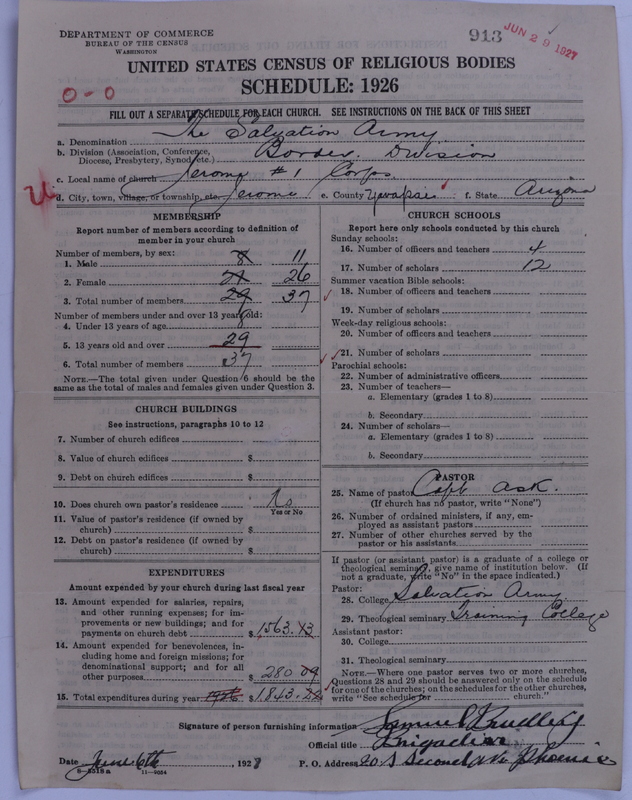 DEPARTMENT OF COMMERCE
BUREAU OF THE CENSUS
WASHINGTON
913
JUN 29 1927
UNITED STATES CENSUS OF RELIGIOUS BODIES
SCHEDULE: 1926
0-0
FILL OUT A SEPARATE SCHEDULE FOR EACH CHURCH. SEE INSTRUCTIONS ON THE BACK OF THIS SHEET
a. Denomination The Salvation Army
b. Division (Association, Conference, Diocese, Presbytery, Synod, etc.) Border Division
c. Local name of church Jerome #1 Corps.
d. City, town, village, or township, etc. Jerome e. County Yavapai f. State Arizona
MEMBERSHIP
Report number of members according to definition of
member in your church
Number of members, by sex:
1. Male 8 11
2. Female 21 26
3. Total number of members 29 37
Number of members under and over 13 years old:
4. Under 13 years of age 8
5. 13 years old and over 29
6. Total number of members 37
NOTE.—The total given under Question 6 should be the
same as the total of males and females given under Question 3.
CHURCH BUILDINGS
See instructions, paragraphs 10 to 12
7. Number of church edifices
8. Value of church edifices $
9. Debt on church edifices $
10. Does church own pastor's residence No
Yes or No
11. Value of pastor's residence (if owned by
church) $
12. Debt on pastor's residence (if owned by
church) $
EXPENDITURES
Amount expended by your church during last fiscal year
13. Amount expended for salaries, repairs,
and other running expenses; for im-
provements or new buildings; and for
payments on church debt $ 1563.13
14. Amount expended for benevolences, in-
cluding home and foreign missions; for
denominational support; and for all
other purposes $ 280.09
15. Total expenditures during year 1926 $ 1843.22
CHURCH SCHOOLS
Report here only schools conducted by this church
Sunday schools:
16. Number of officers and teachers 4
17. Number of scholars 12
Summer vacation Bible schools:
18. Number of officers and teachers
19. Number of scholars
Week-day religious schools:
20. Number of officers and teachers
21. Number of scholars
Parochial schools:
22. Number of administrative officers
23. Number of teachers—
a. Elementary (grades 1 to 8)
b. Secondary
24. Number of scholars—
a. Elementary (grades 1 to 8)
b. Secondary
PASTOR
25. Name of pastor Capt Ask.
(If church has no pastor, write "None")
26. Number of ordained ministers, if any, em-
ployed as assistant pastors
27. Number of other churches served by the
pastor or his assistants
If pastor (or assistant pastor) is a graduate of a college or
theological seminary, give name of institution below. (If
not a graduate, write "No" in the space indicated.)
Pastor:
28. College Salvation Army
29. Theological seminary Training College
Assistant pastor:
30. College
31. Theological seminary
NOTE.—Where one pastor serves two or more churches,
Questions 28 and 29 should be answered only on the schedule
for one of the churches; on the schedules for the other churches,
write "See schedule for church."
Signature of person furnishing information Samuel Bradley
Official title Brigadier
Date June 6th, 1927 P. O. Address 20 S Second Ave Phoenix
8-5518a 11-9054